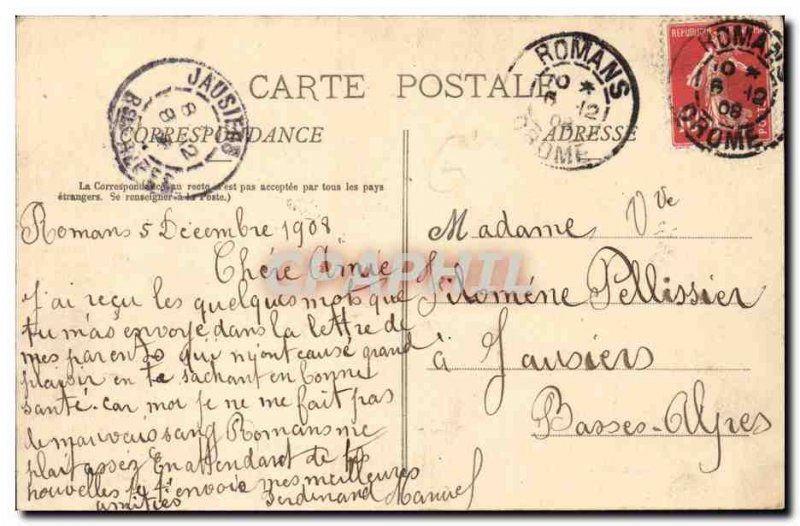 CARTE POSTALE
CORRESPONDANCE
ADRESSE
La Correspondance au recto n'est pas acceptée par tous les pays
étrangers. Se renseigner à la Poste.)
JAUSIERS
8 12
BSES ALPES
ROMANS
6 12
08
DROME
ROMANS
6 12
08
DROME
Romans 5 Décembre 1908
Chère Amie
J'ai reçu les quelques mots que
tu m'as envoyé dans la lettre de
mes parents qui m'ont causé grand
plaisir en te sachant en bonne
santé. car moi je ne me fait pas
de mauvais sang Romans me
plait assez En attendant de tes
nouvelles je t'envoie mes meilleures
amitiés Ferdinand Manuel
Madame Vve
Filomène Pellissier
à Jausiers
Basses-Alpes
CPAPHIL